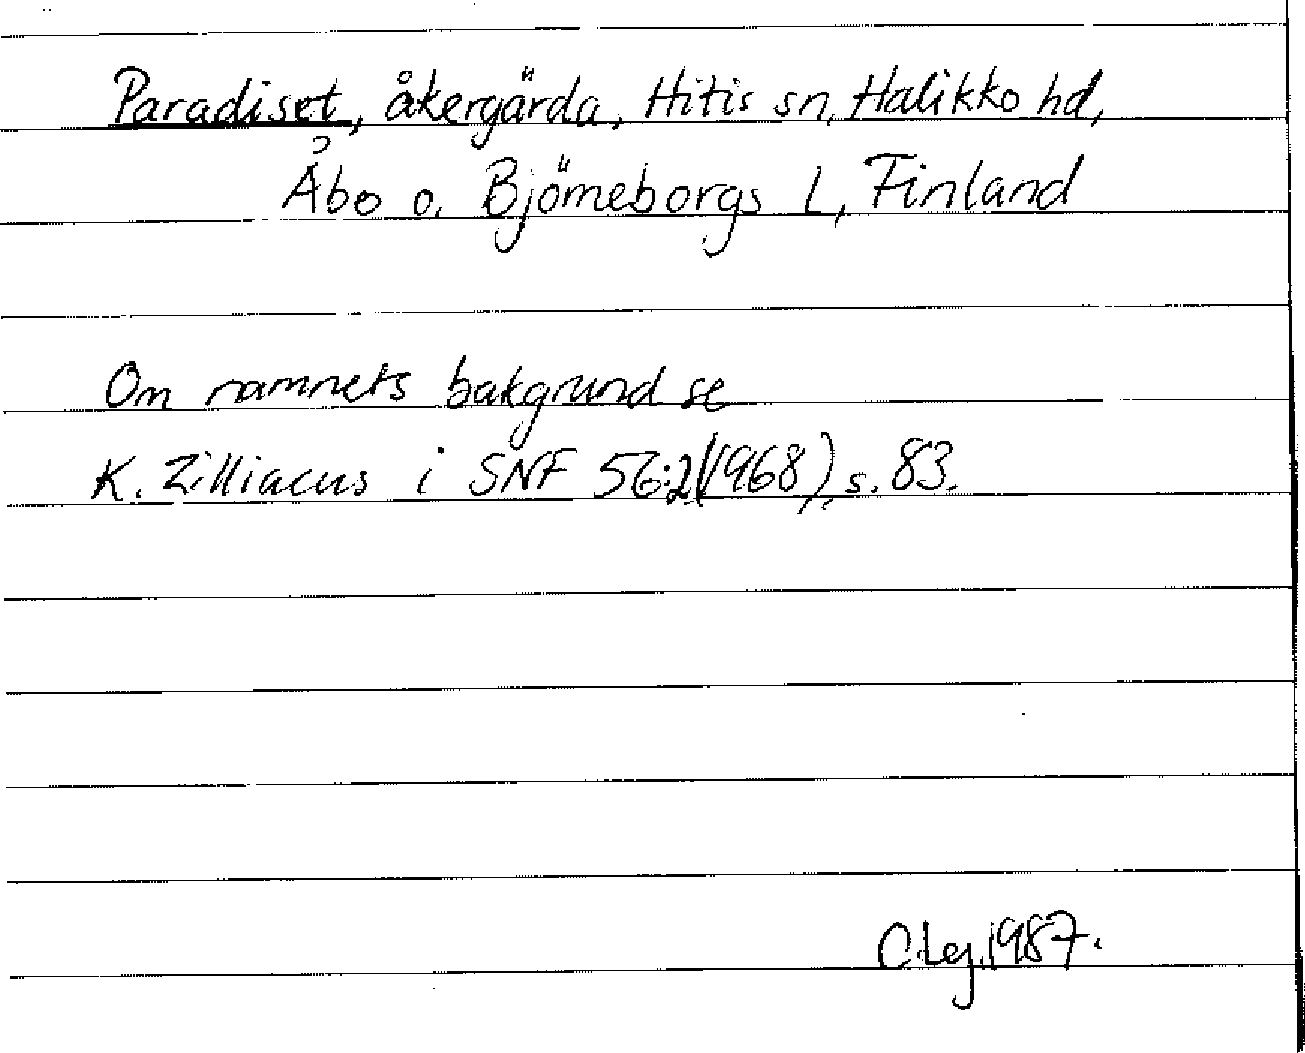 Paradiset, åkergärda, Hitis sn, Halikko hd,
Åbo o. Björneborgs L, Finland
Om namnets bakgrund se
K. Zilliacus i SNF 56:2(1968), s. 83.
C.Lej.1987.